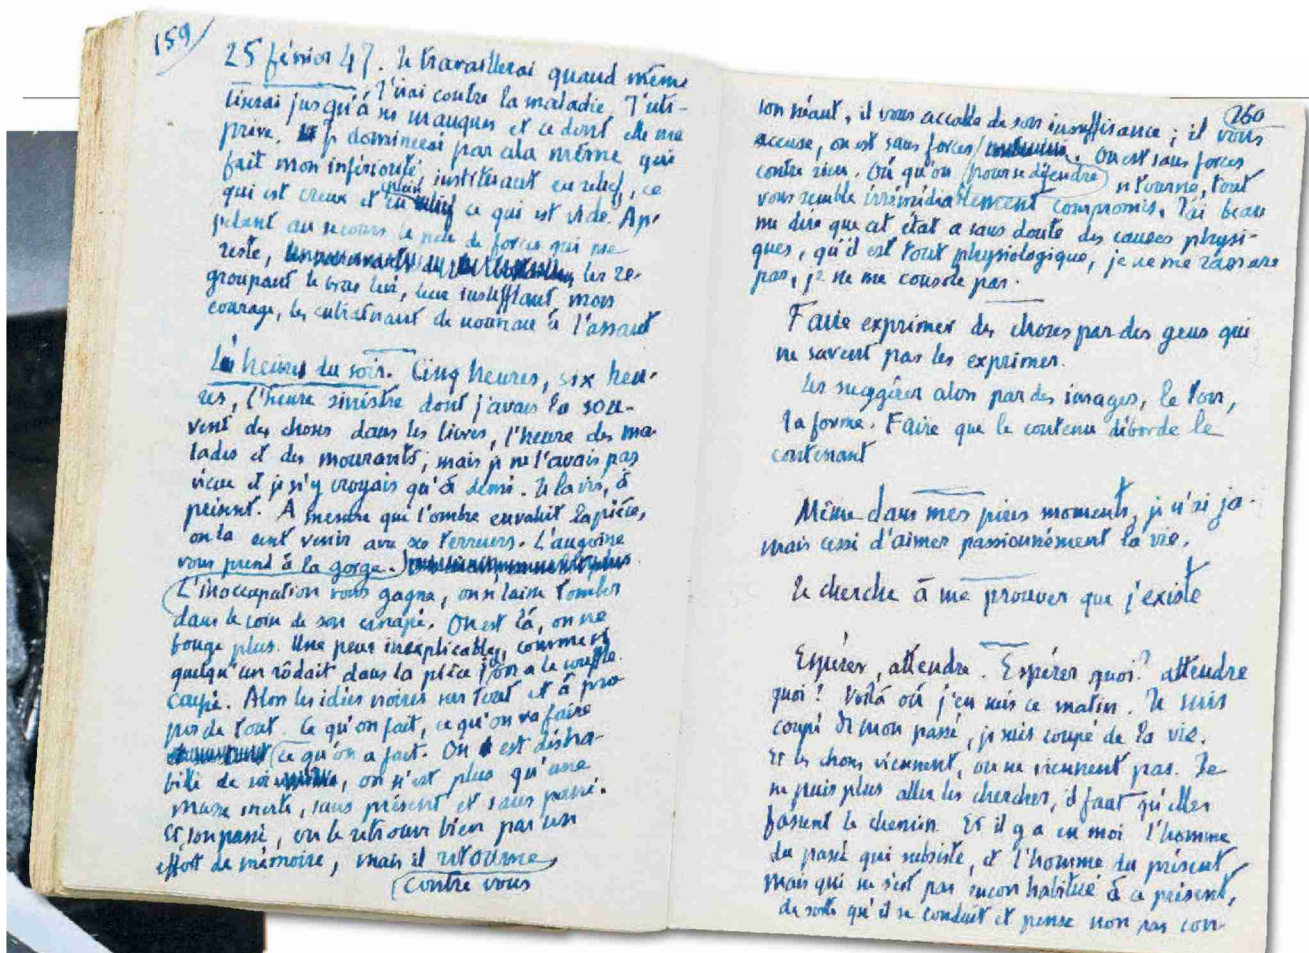 159
25 février 47. Je travaillerai quand même
, j'irai contre la maladie. J'uti-
liserai jusqu'à ses manques et ce dont elle me
prive. Je dominerai par cela même qui
fait mon infériorité, justifiant en relief, ce
qui est creux et en plein ce qui est vide. Ap-
pelant au secours le peu de forces qui me
reste, les re-
groupant le bras levé, leur insufflant mon
courage, les entraînant de nouveau à l'assaut
Les heures du soir. Cinq heures, six heu-
res, l'heure sinistre dont j'avais lu sou-
vent des choses dans les livres, l'heure des ma-
lades et des mourants, mais je ne l'avais pas
vécue et je n'y croyais qu'à demi. Je la vis, à
présent. A mesure que l'ombre envahit la pièce,
on la sent venir avec ses terreurs. L'angoisse
vous prend à la gorge.
L'inoccupation vous gagne, on se laisse tomber
dans le coin de son canapé. On est là, on ne
bouge plus. Une peur inexplicable, comme si
quelqu'un rôdait dans la pièce, on a le souffle
coupé. Alors les idées noires sur tout et à pro-
pos de tout. Ce qu'on fait, ce qu'on va faire
ce qu'on a fait. On est désha-
billé de soi, on n'est plus qu'une
masse inerte, sans présent et sans passé.
Et son passé, on le retrouve bien par un
effort de mémoire, mais il retourne
contre vous
260
son néant, il vous accable de son insuffisance ; il vous
accuse, on est sans forces. On est sans forces
contre rien. Où qu'on pour se défendre se tourne, tout
vous semble irrémédiablement compromis. J'ai beau
me dire que cet état a sans doute des causes physi-
ques, qu'il est tout physiologique, je ne me rassure
pas, je ne me console pas.
Faire exprimer des choses par des gens qui
ne savent pas les exprimer.
Les suggérer alors par des images, le ton,
la forme. Faire que le contenu déborde le
contenant
Même dans mes pires moments, je n'ai ja-
mais cessé d'aimer passionnément la vie.
Je cherche à me prouver que j'existe
Espérer, attendre. Espérer quoi ? attendre
quoi ? Voilà où j'en suis ce matin. Je suis
coupé de mon passé, je suis coupé de la vie.
Et les choses viennent, ou ne viennent pas. Je
ne puis plus aller les chercher, il faut qu'elles
fassent le chemin. Et il y a en moi l'homme
du passé qui subsiste, et l'homme du présent
mais qui ne s'est pas encore habitué à ce présent,
de sorte qu'il se conduit et pense non pas con-